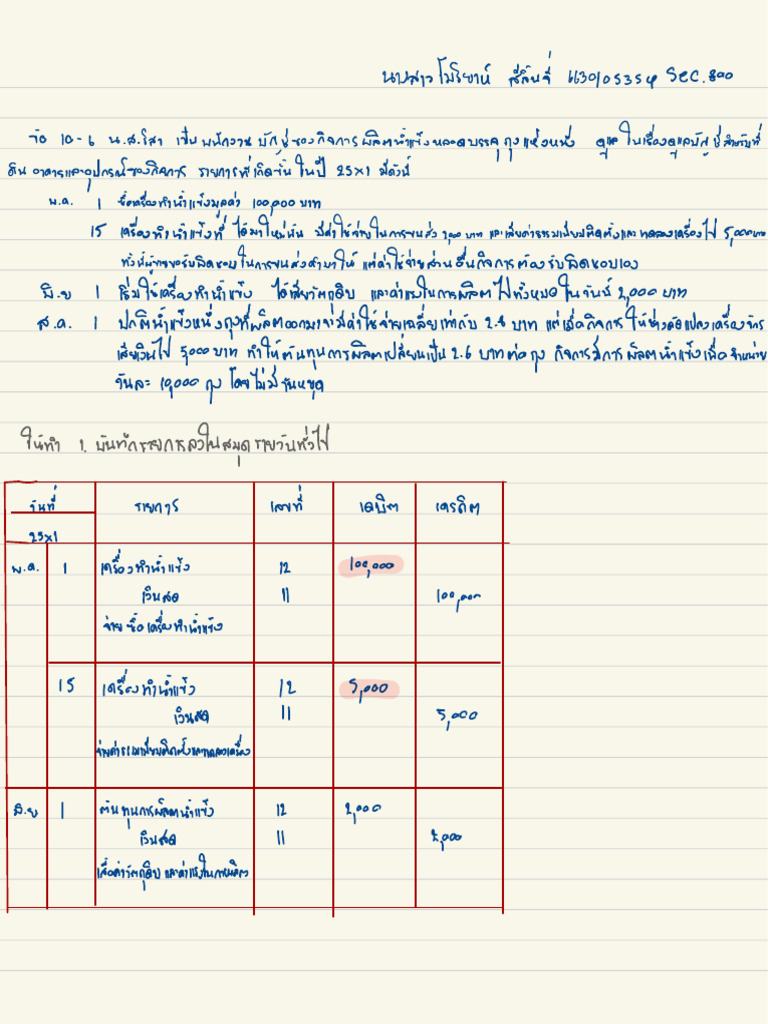 นางสาว โมริยาห์ สีลิ้นจี่ 6630105354 Sec.800
ข้อ 10-6 น.ส.โสา เป็นพนักงาน บัญชีของกิจการผลิตน้ำแข็งหลอดบรรจุถุงแห่งหนึ่ง ดูแลในเรื่องดูแลบัญชีสำหรับที่
ดิน อาคารและอุปกรณ์ของกิจการ รายการที่เกิดขึ้นในปี 25x1 มีดังนี้
พ.ค. 1 ซื้อเครื่องทำน้ำแข็งมูลค่า 100,000 บาท
15 เครื่องทำน้ำแข็งที่ได้มาใหม่นั้น มีค่าใช้จ่ายในการขนส่ง 7,000 บาท และเสียค่าธรรมเนียมติดตั้งและทดลองเครื่องไป 5,000บาท
ทั้งนี้ผู้ขายขอรับผิดชอบในการขนส่งค่ามาให้ แต่ค่าใช้จ่ายส่วนอื่นกิจการต้องรับผิดชอบเอง
มิ.ย 1 เริ่มใช้เครื่องทำน้ำแข็ง ได้เสียวัตถุดิบ และค่าแรงในการผลิตไปทั้งหมดในวันนี้ 2,000 บาท
ส.ค. 1 ปกติน้ำแข็งหนึ่งถุงที่ผลิตออกมาจะมีค่าใช้จ่ายเฉลี่ยเท่ากับ 2.8 บาท แต่เมื่อกิจการให้ช่างดัดแปลงเครื่องจักร
เสียเงินไป 5,000 บาท ทำให้ต้นทุนการผลิตเปลี่ยนเป็น 2.6 บาทต่อถุง กิจการมีการผลิตน้ำแข็งเพื่อจำหน่าย
วันละ 10,000 ถุง โดยไม่มีวันหยุด
ให้ทำ 1. บันทึกรายการลงในสมุดรายวันทั่วไป
วันที่ รายการ เลขที่ เดบิต เครดิต
25x1
พ.ค. 1 เครื่องทำน้ำแข็ง 12 100,000
เงินสด 11 100,000
จ่ายซื้อเครื่องทำน้ำแข็ง
15 เครื่องทำน้ำแข็ง 12 5,000
เงินสด 11 5,000
จ่ายค่าธรรมเนียมติดตั้งและทดลองเครื่อง
มิ.ย 1 ต้นทุนการผลิตน้ำแข็ง 12 2,000
เงินสด 11 2,000
เสียค่าวัตถุดิบ และค่าแรงในการผลิต